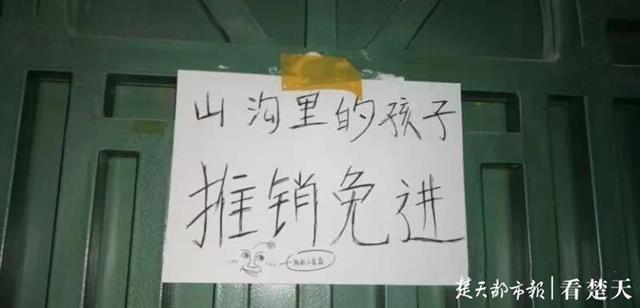 山沟里的孩子
推销免进
楚天都市报|看楚天